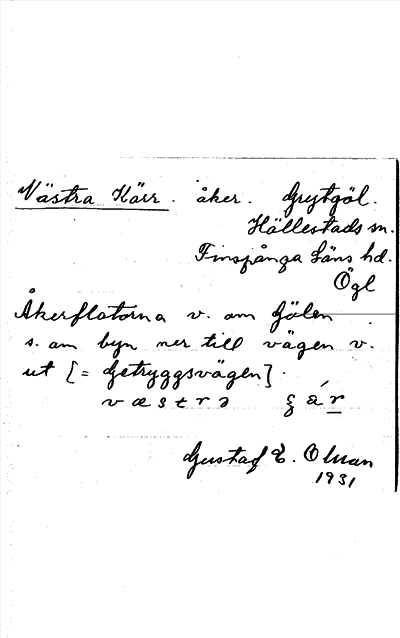 Västra Kärr. åker. Grytgöl.
Hällestads sn.
Finspånga läns hd.
Ögl
Åkerflatorna v. om Gölen
s. om byn ner till vägen v.
ut [= Getryggsvägen].
væstrə ɕǽr
Gustaf E. Olsson
1931